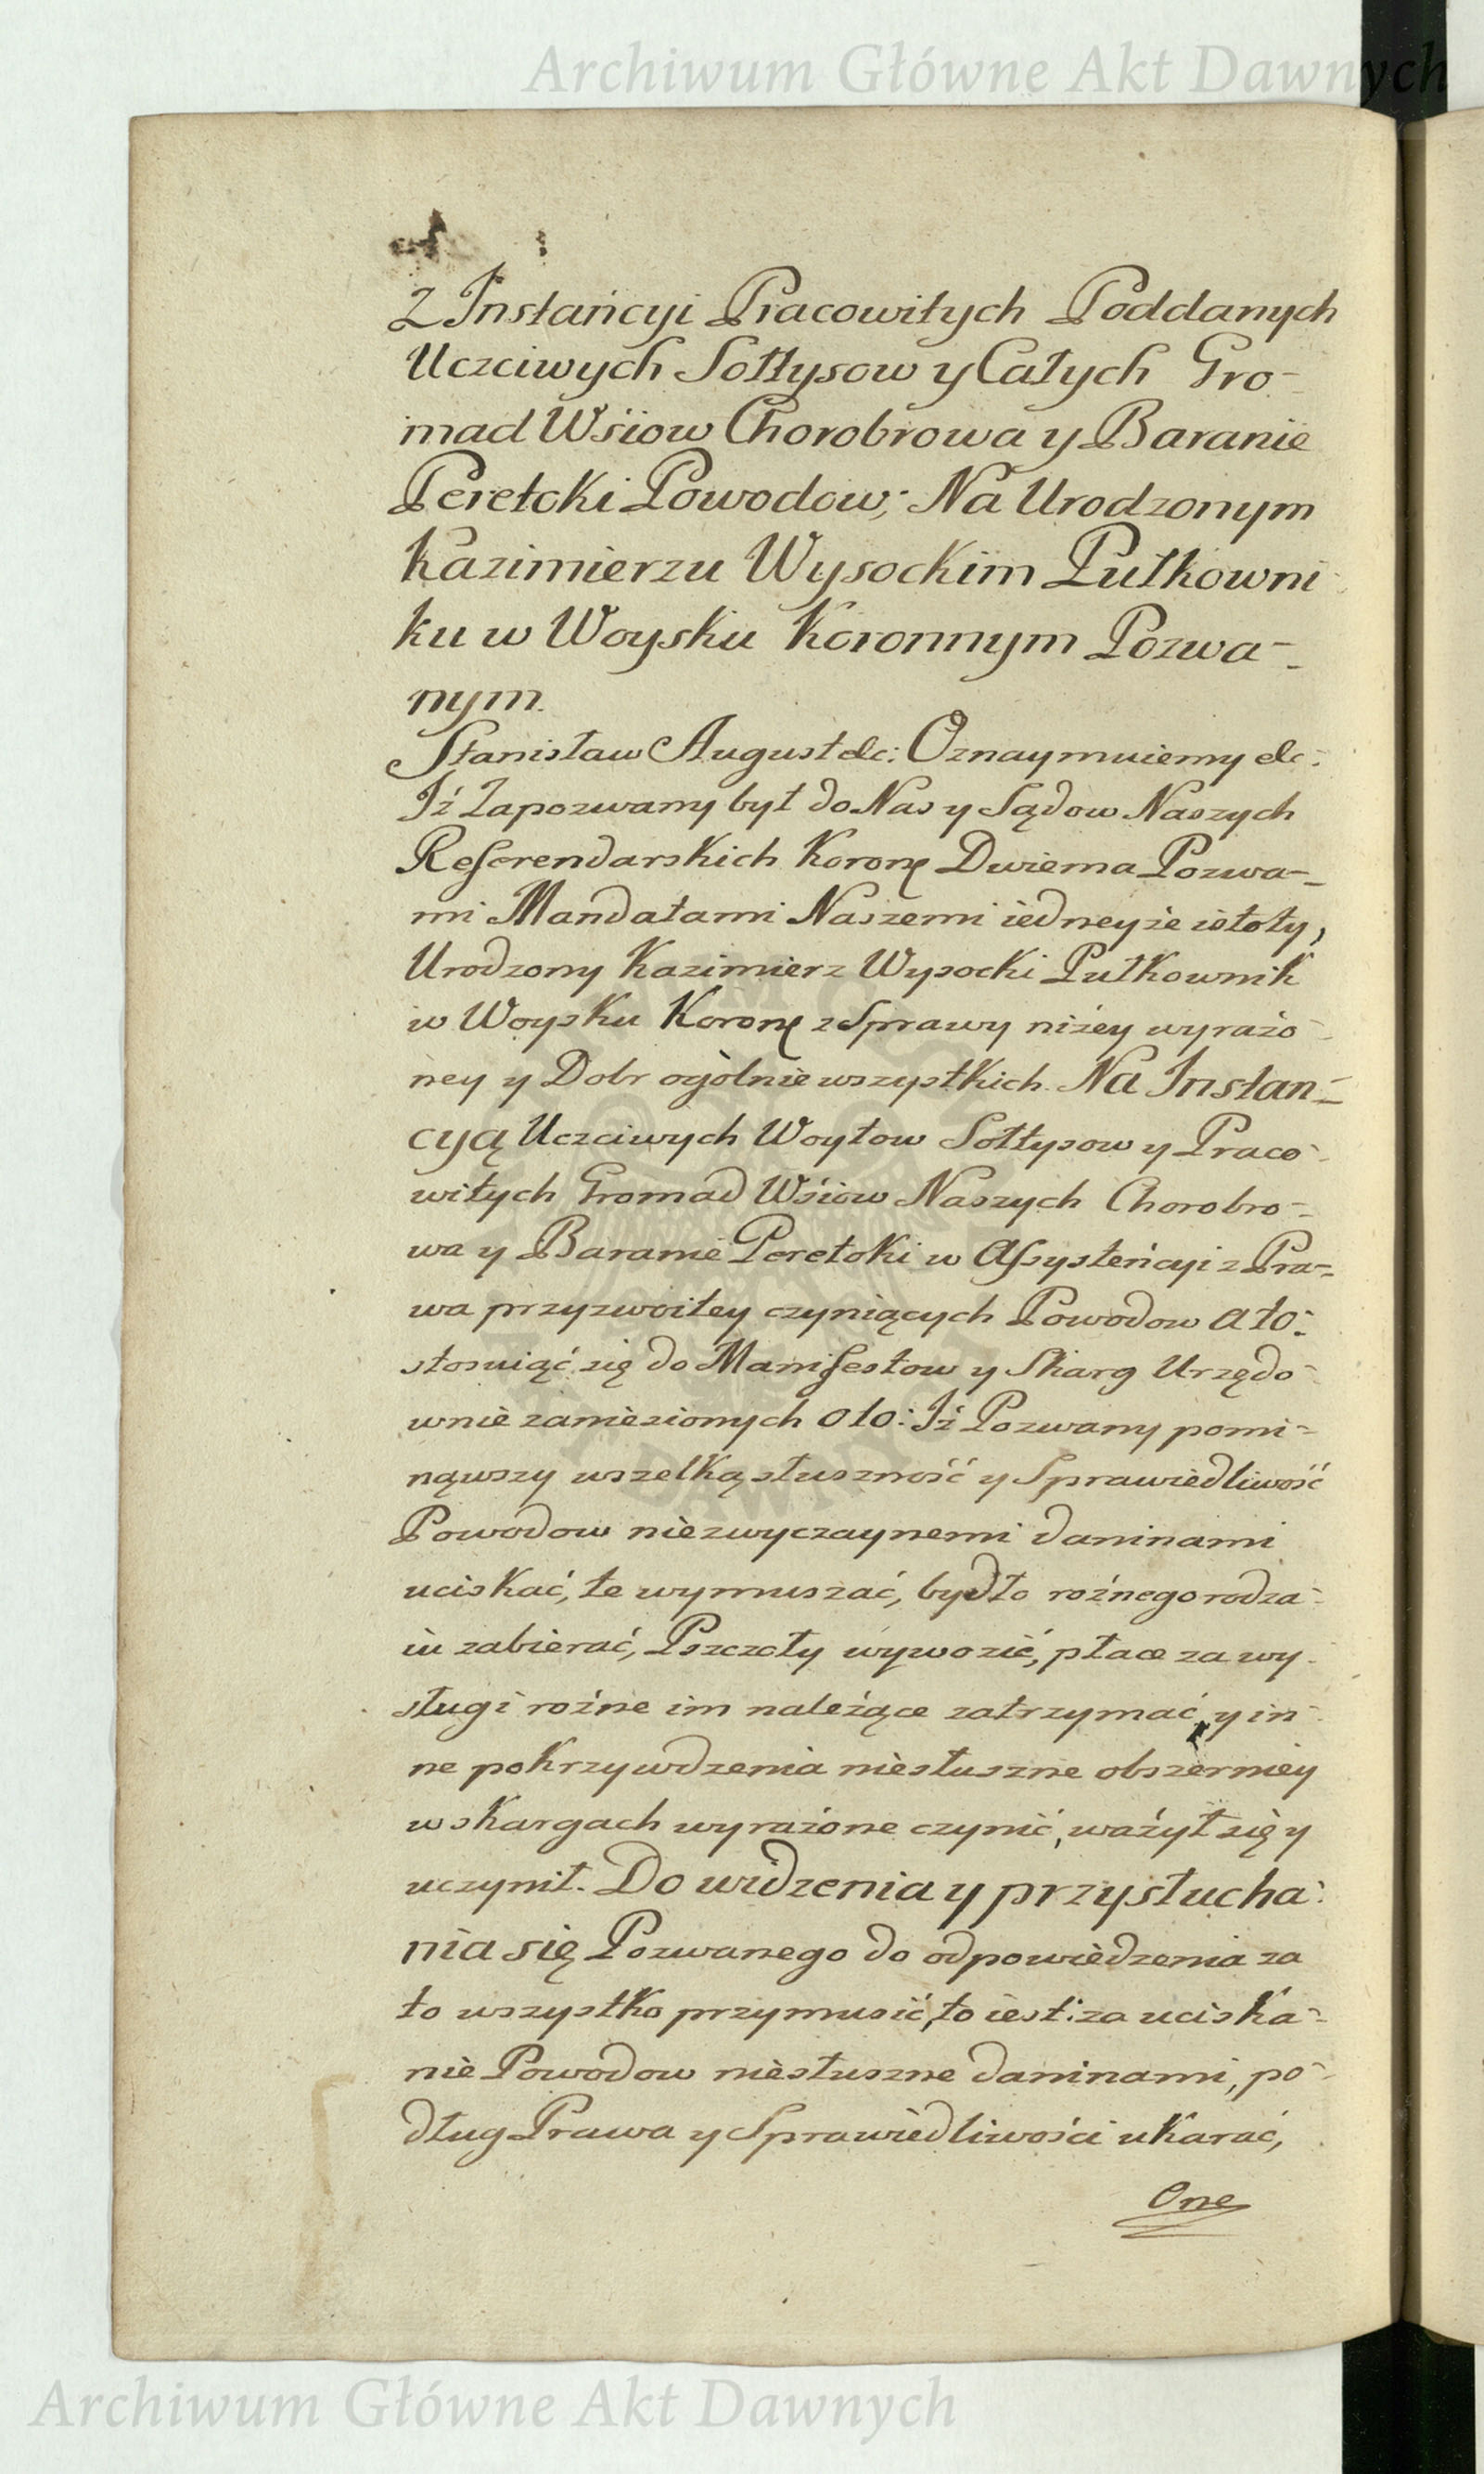 Archiwum Główne Akt Dawnych
Z Instańcyi Pracowitych Poddanych
Uczciwych Sołtysow y Całych Gro-
mad Wsiow Chorobrowa y Baranie
Peretoki Powodow; Na Urodzonym
Kazimierzu Wysockim Pułkowni-
ku w Woysku Koronnym Pozwa-
nym.
Stanisław August &c: Oznaymuiemy &c:
Iż Zapozwany był do Nas y Sądow Naszych
Referendarskich Koronę Dwiema Pozwa-
mi Mandatami Naszemi iedneyże istoty,
Urodzony Kazimierz Wysocki Pułkownik
w Woysku Koronę z Sprawy niżey wyrażo-
ney y Dobr ogólnie wszystkich. Na Instan-
cyą Uczciwych Woytow Sołtysow y Praco-
witych Gromad Wsiow Naszych Chorobro-
wa y Baranie Peretoki w Assysteńcyi z Pra-
wa przyzwoitey czyniących Powodow a to:
stosuiąć się do Manifestow y Skarg Urzędo-
wnie zaniesionych o to: Iż Pozwany pomi-
nąwszy wszelką słuszność y Sprawiedliwość
Powodow niezwyczaynemi daninami
uciskać, te wymuszać, bydło rożnego rodza-
iu zabierać, Pszczoły wywozić, płace za wy-
sługi rożne im należące zatrzymać, y in-
ne pokrzywdzenia niesłuszne obszerniey
w skargach wyrażone czynić, ważył się y
uczynił. Do widzenia y przysłucha-
nia się Pozwanego do odpowiedzenia za
to wszystko przymusić, to iest: za uciska-
nie Powodow niesłuszne daninami, po-
dług Prawa y Sprawiedliwości ukarać,
One
Archiwum Główne Akt Dawnych